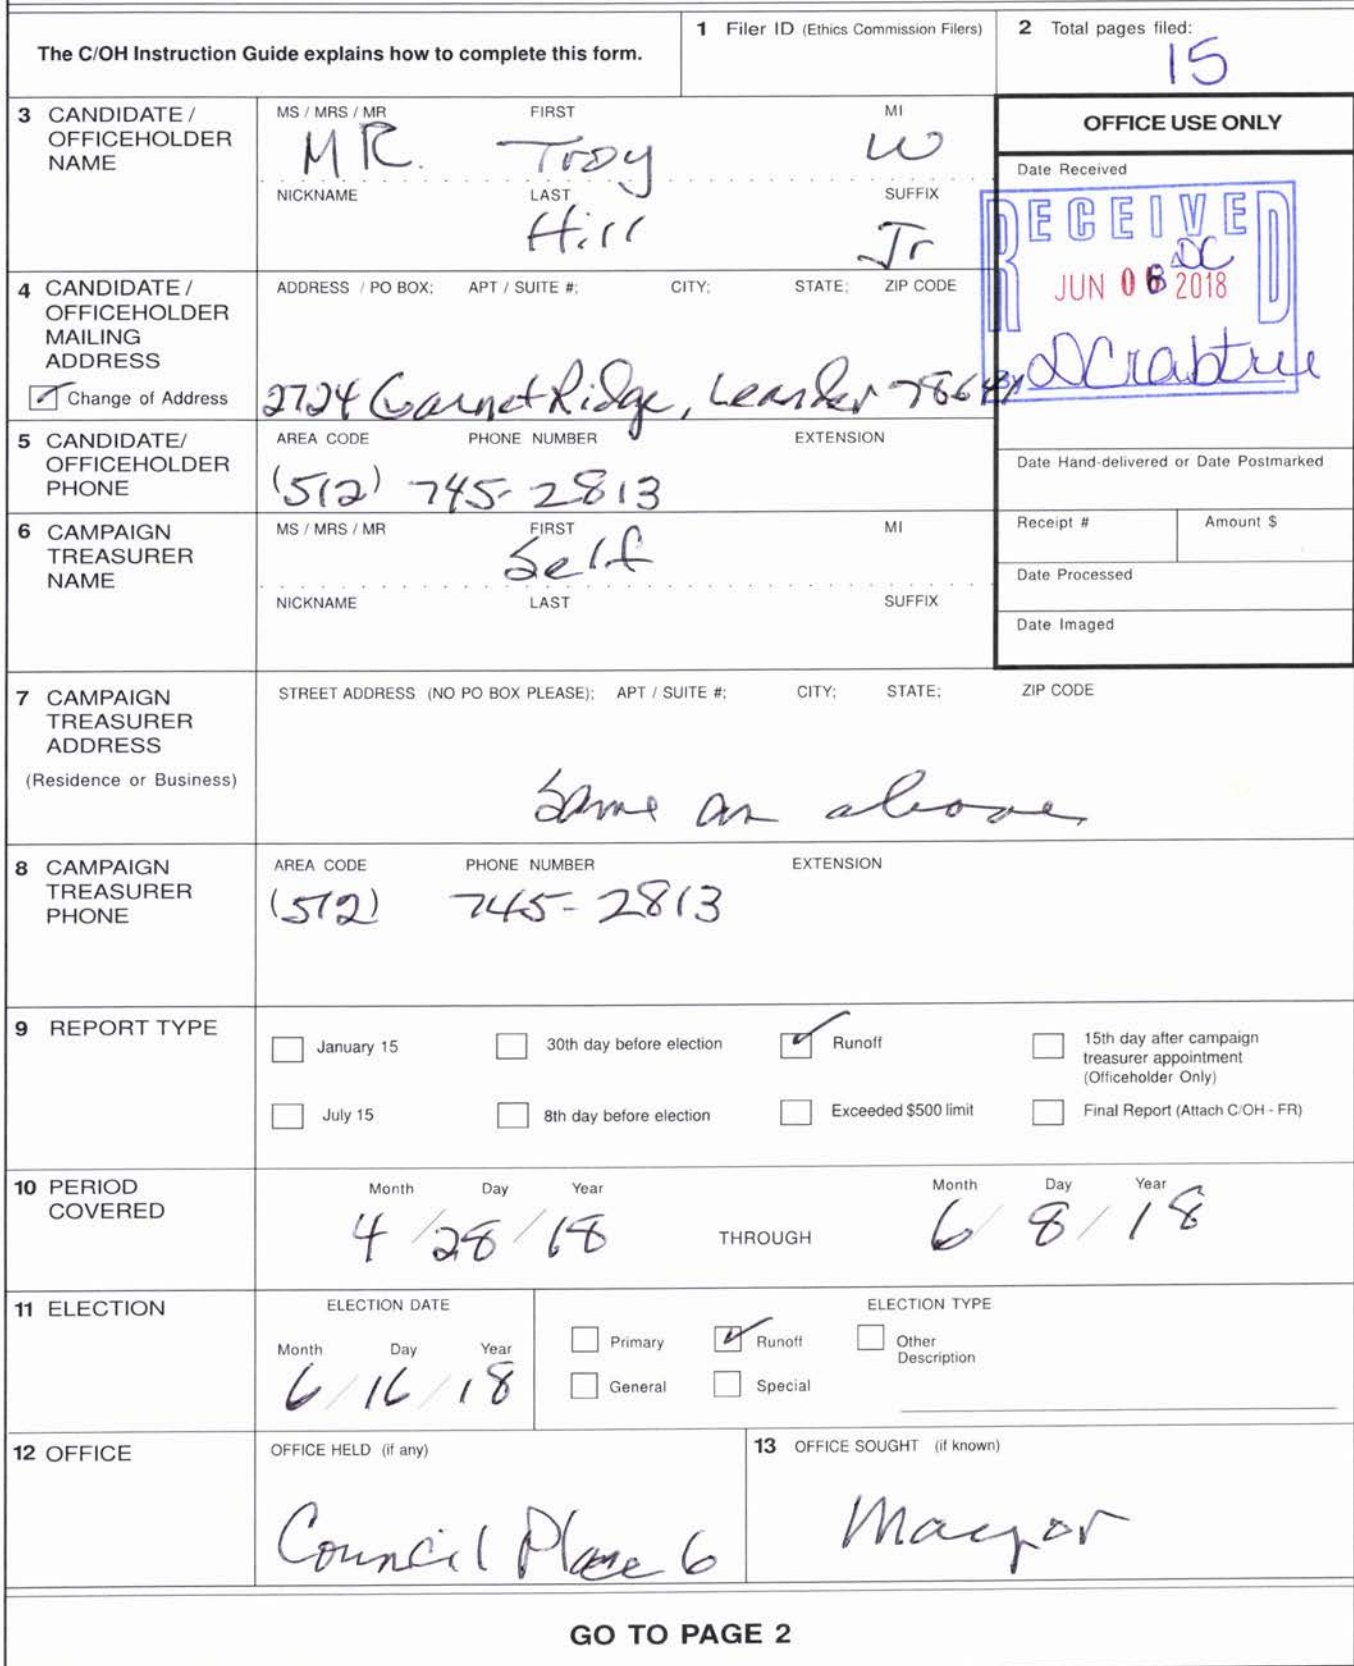 The C/OH Instruction Guide explains how to complete this form.
1 Filer ID (Ethics Commission Filers)
2 Total pages filed:
15
3 CANDIDATE / OFFICEHOLDER NAME
MS / MRS / MR FIRST MI
MR. Troy W
NICKNAME LAST SUFFIX
Hill Jr
OFFICE USE ONLY
Date Received
RECEIVED
DC
JUN 06 2018
DCrabtree
4 CANDIDATE / OFFICEHOLDER MAILING ADDRESS
Change of Address
ADDRESS / PO BOX; APT / SUITE #; CITY; STATE; ZIP CODE
2724 Garnet Ridge, Leander 78641
5 CANDIDATE/ OFFICEHOLDER PHONE
AREA CODE PHONE NUMBER EXTENSION
(512) 745-2813
Date Hand-delivered or Date Postmarked
Receipt # Amount $
Date Processed
Date Imaged
6 CAMPAIGN TREASURER NAME
MS / MRS / MR FIRST MI
Self
NICKNAME LAST SUFFIX
7 CAMPAIGN TREASURER ADDRESS
(Residence or Business)
STREET ADDRESS (NO PO BOX PLEASE); APT / SUITE #; CITY; STATE; ZIP CODE
Same as above
8 CAMPAIGN TREASURER PHONE
AREA CODE PHONE NUMBER EXTENSION
(512) 745-2813
9 REPORT TYPE
January 15 30th day before election Runoff 15th day after campaign treasurer appointment (Officeholder Only)
July 15 8th day before election Exceeded $500 limit Final Report (Attach C/OH - FR)
10 PERIOD COVERED
Month Day Year Month Day Year
4/28/18 THROUGH 6/8/18
11 ELECTION
ELECTION DATE
Month Day Year
6/16/18
ELECTION TYPE
Primary Runoff Other Description
General Special
12 OFFICE
OFFICE HELD (if any)
Council Place 6
13 OFFICE SOUGHT (if known)
Mayor
GO TO PAGE 2